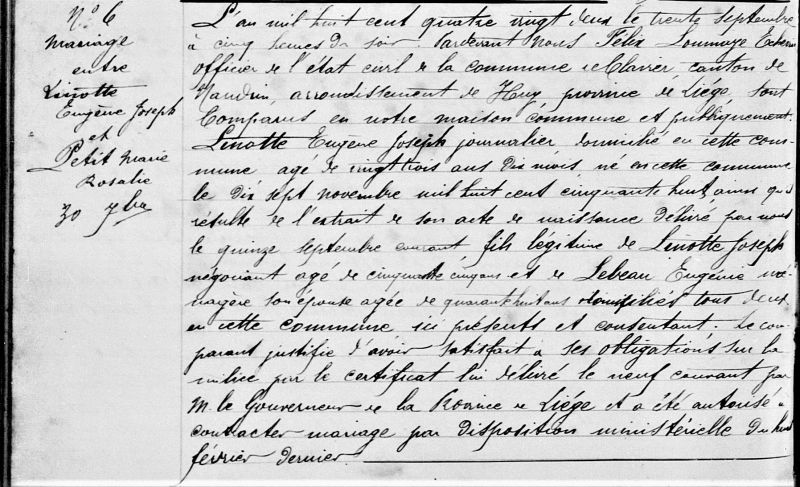 N° 6
Mariage
entre
Linotte
Eugène Joseph
et
Petit Marie
Rosalie
30 7bre
L'an mil huit cent quatre vingt deux le trente septembre
à cinq heures du soir. Pardevant nous Félix
officier de l'état civil de la commune de Clavier, canton de
Nandrin, arrondissement de Huy, province de Liége, sont
Comparus en notre maison commune et publiquement
Linotte Eugène Joseph journalier, domicilié en cette com-
mune agé de vingt trois ans dix mois, né en cette commune
le dix sept novembre mil huit cent cinquante huit, ainsi qu'il
résulte de l'extrait de son acte de naissance délivré par nous
le quinze septembre courant fils légitime de Linotte Joseph
négociant agé de cinquante cinq ans et de Lebeau Eugénie mé-
nagère son épouse agée de quarante huit ans domiciliés tous deux
en cette commune ici présents et consentant. Le com-
parant justifie d'avoir satisfait à ses obligations sur la
milice par le certificat lui délivré le neuf courant par
M. le Gouverneur de la Province de Liége et a été autorisé à
contracter mariage par disposition ministérielle du huit
février dernier.